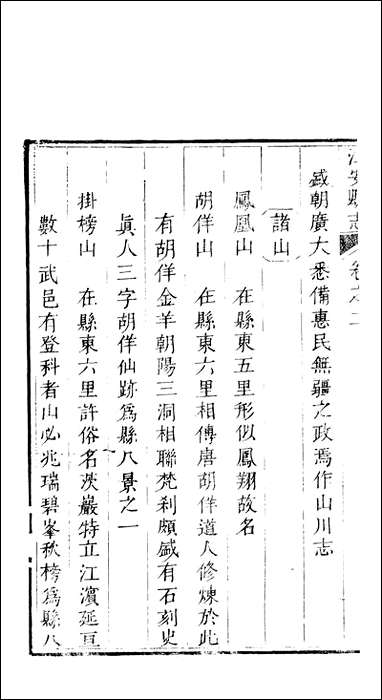 江安縣志
卷之二
盛朝廣大悉備惠民無疆之政焉作山川志
諸山
鳳凰山　在縣東五里形似鳳翔故名
胡佯山　在縣東六里相傳唐胡佯道人修煉於此
有胡佯金羊朝陽三洞相聯梵刹頗盛有石刻史
眞人三字胡佯仙跡爲縣八景之一
掛榜山　在縣東六里許俗名茨巖特立江濵延亘
數十武邑有登科者山必兆瑞碧峯秋榜爲縣八